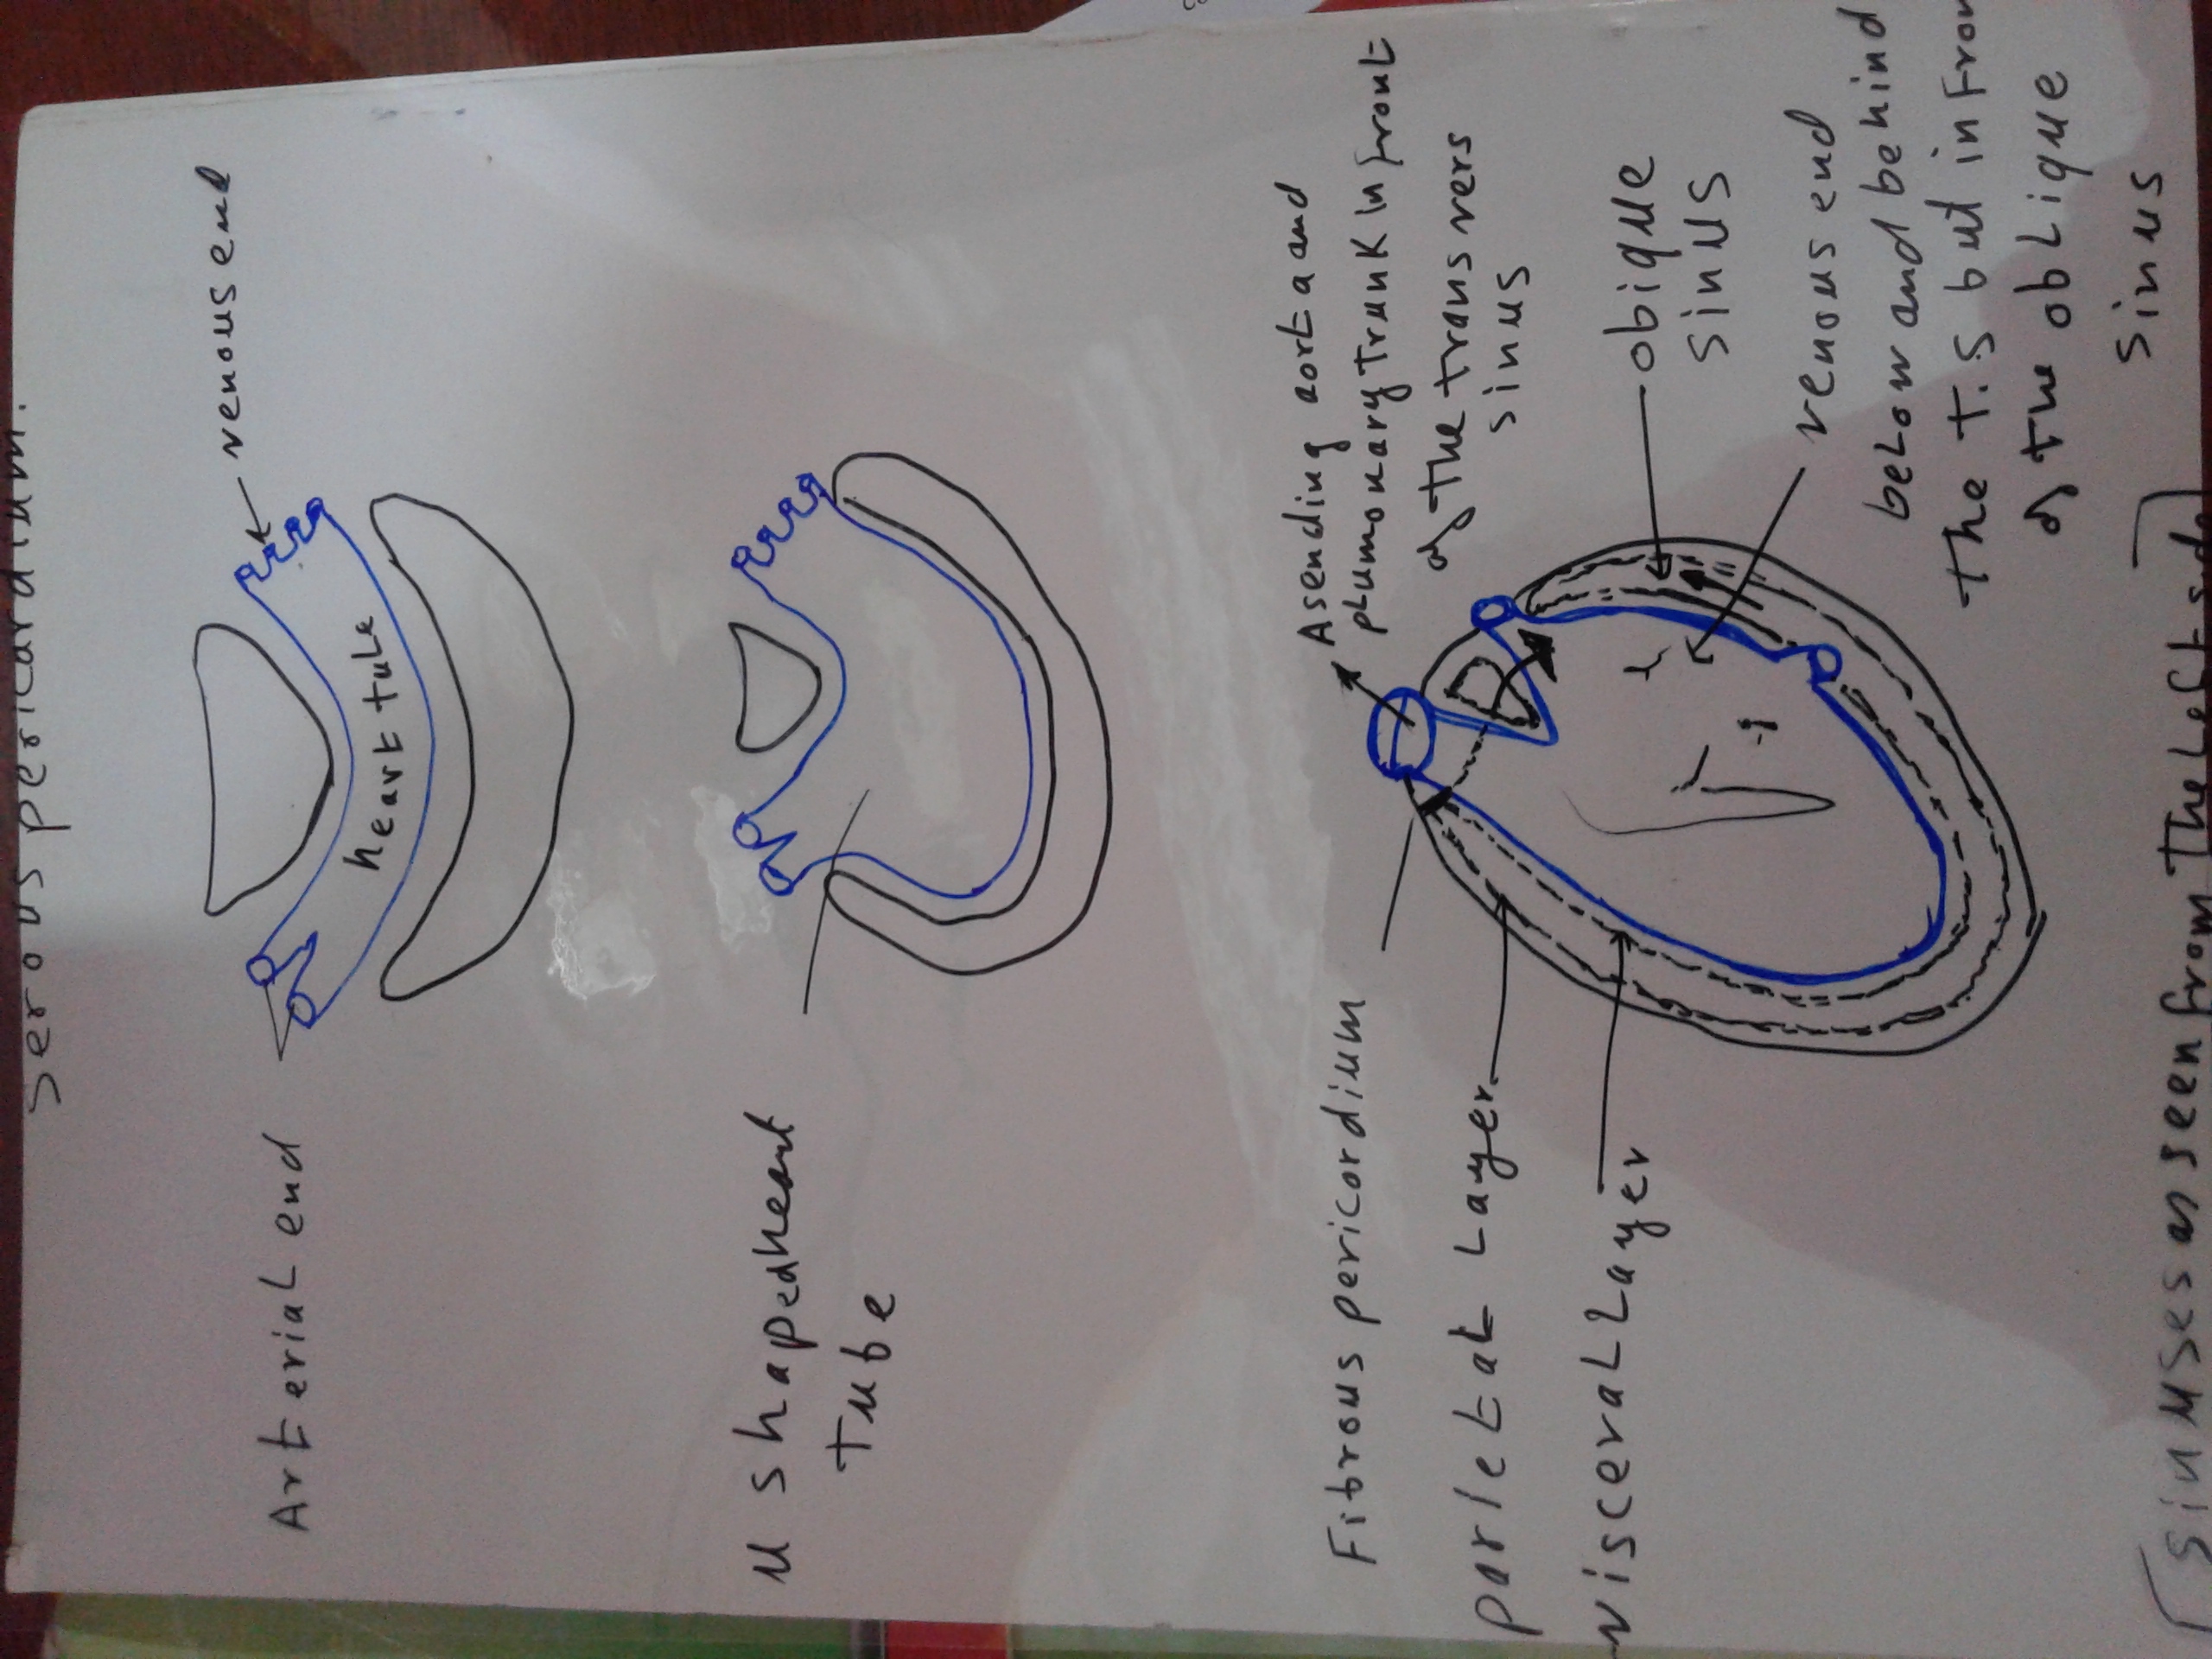 serous pericardium.
venous end
Arterial end
heart tube
u shaped heart
tube
Asending aorta and
plumonary trunk in front
of the transvers
sinus
Fibrous pericordium
parietal Layer
visceral Layer
obique
sinus
venous end
below and behind
the T.S but in Fron
of the oblique
sinus
[sinuses as seen from The Left side]